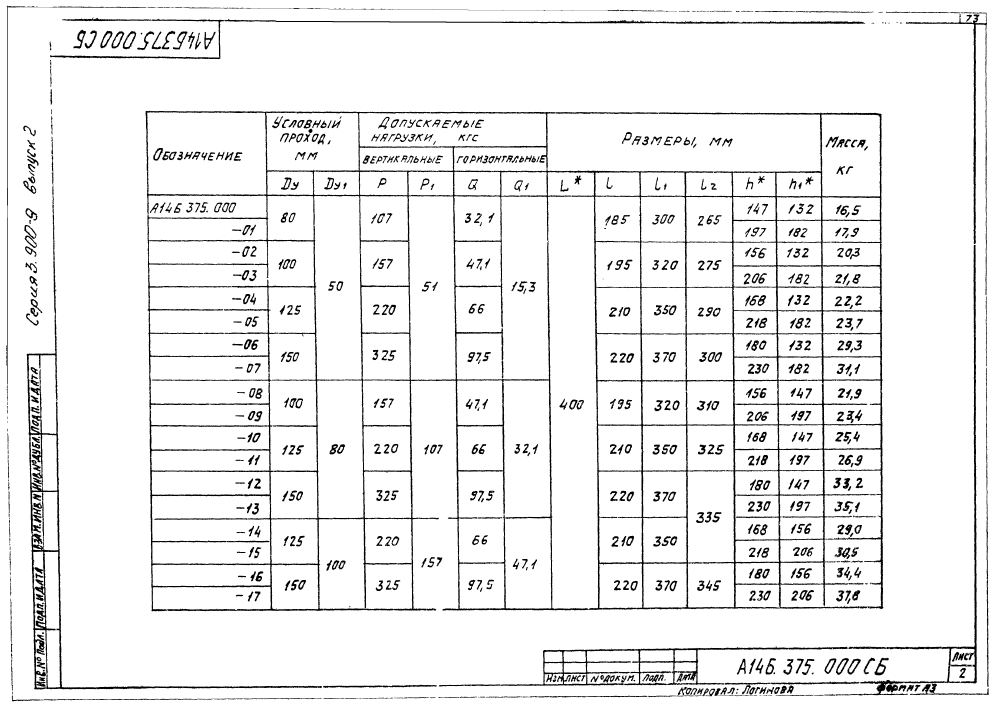 73
А14Б375.000 СБ
Серия 3.900-9 выпуск 2
Обозначение | Условный проход, мм | Допускаемые нагрузки, кгс | Размеры, мм | Масса, кг
вертикальные | горизонтальные
Dу | Dу1 | P | P1 | Q | Q1 | L* | l | l1 | l2 | h* | h1*
А14Б 375.000 | 80 | 50 | 107 | 51 | 32,1 | 15,3 | 400 | 185 | 300 | 265 | 147 | 132 | 16,5
-01 | 197 | 182 | 17,9
-02 | 100 | 157 | 47,1 | 195 | 320 | 275 | 156 | 132 | 20,3
-03 | 206 | 182 | 21,8
-04 | 125 | 220 | 66 | 210 | 350 | 290 | 168 | 132 | 22,2
-05 | 218 | 182 | 23,7
-06 | 150 | 325 | 97,5 | 220 | 370 | 300 | 180 | 132 | 29,3
-07 | 230 | 182 | 31,1
-08 | 100 | 80 | 157 | 107 | 47,1 | 32,1 | 195 | 320 | 310 | 156 | 147 | 21,9
-09 | 206 | 197 | 23,4
-10 | 125 | 220 | 66 | 210 | 350 | 325 | 168 | 147 | 25,4
-11 | 218 | 197 | 26,9
-12 | 150 | 325 | 97,5 | 220 | 370 | 335 | 180 | 147 | 33,2
-13 | 230 | 197 | 35,1
-14 | 125 | 100 | 220 | 157 | 66 | 47,1 | 210 | 350 | 168 | 156 | 29,0
-15 | 218 | 206 | 30,5
-16 | 150 | 325 | 97,5 | 220 | 370 | 345 | 180 | 156 | 34,4
-17 | 230 | 206 | 37,8
Инв.№ подл. | Подп. и дата | Взам.инв.№ | Инв.№ дубл. | Подп. и дата
Изм. | Лист | № докум. | Подп. | Дата
А14Б.375.000 СБ
Лист
2
Копировал: Логинова
Формат А3